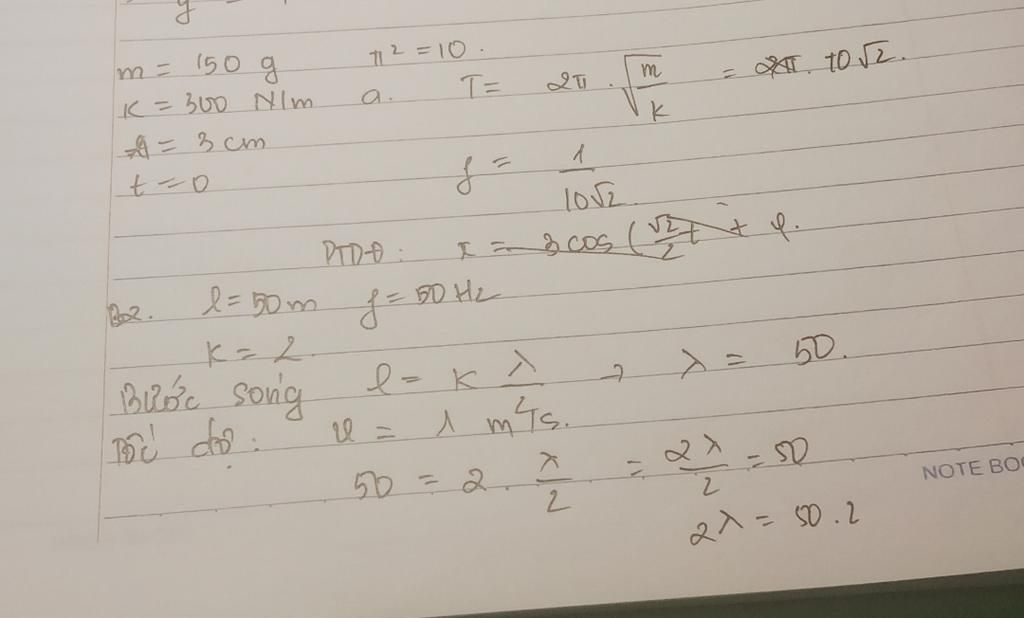 m = 150 g π² = 10.
K = 300 N/m a. T = 2π . √(m/k) = 2π . 10√2.
A = 3 cm
t = 0 f = 1/(10√2)
PTDĐ : x = 3 cos (√2/2 t + φ.
Bài 2. l = 50 m f = 50 Hz
K = 2
Bước sóng l = K λ/2 → λ = 50.
Tốc độ : v = 1 m/s.
50 = 2 . λ/2 = 2λ/2 = 50
NOTE BOO
2λ = 50 . 2